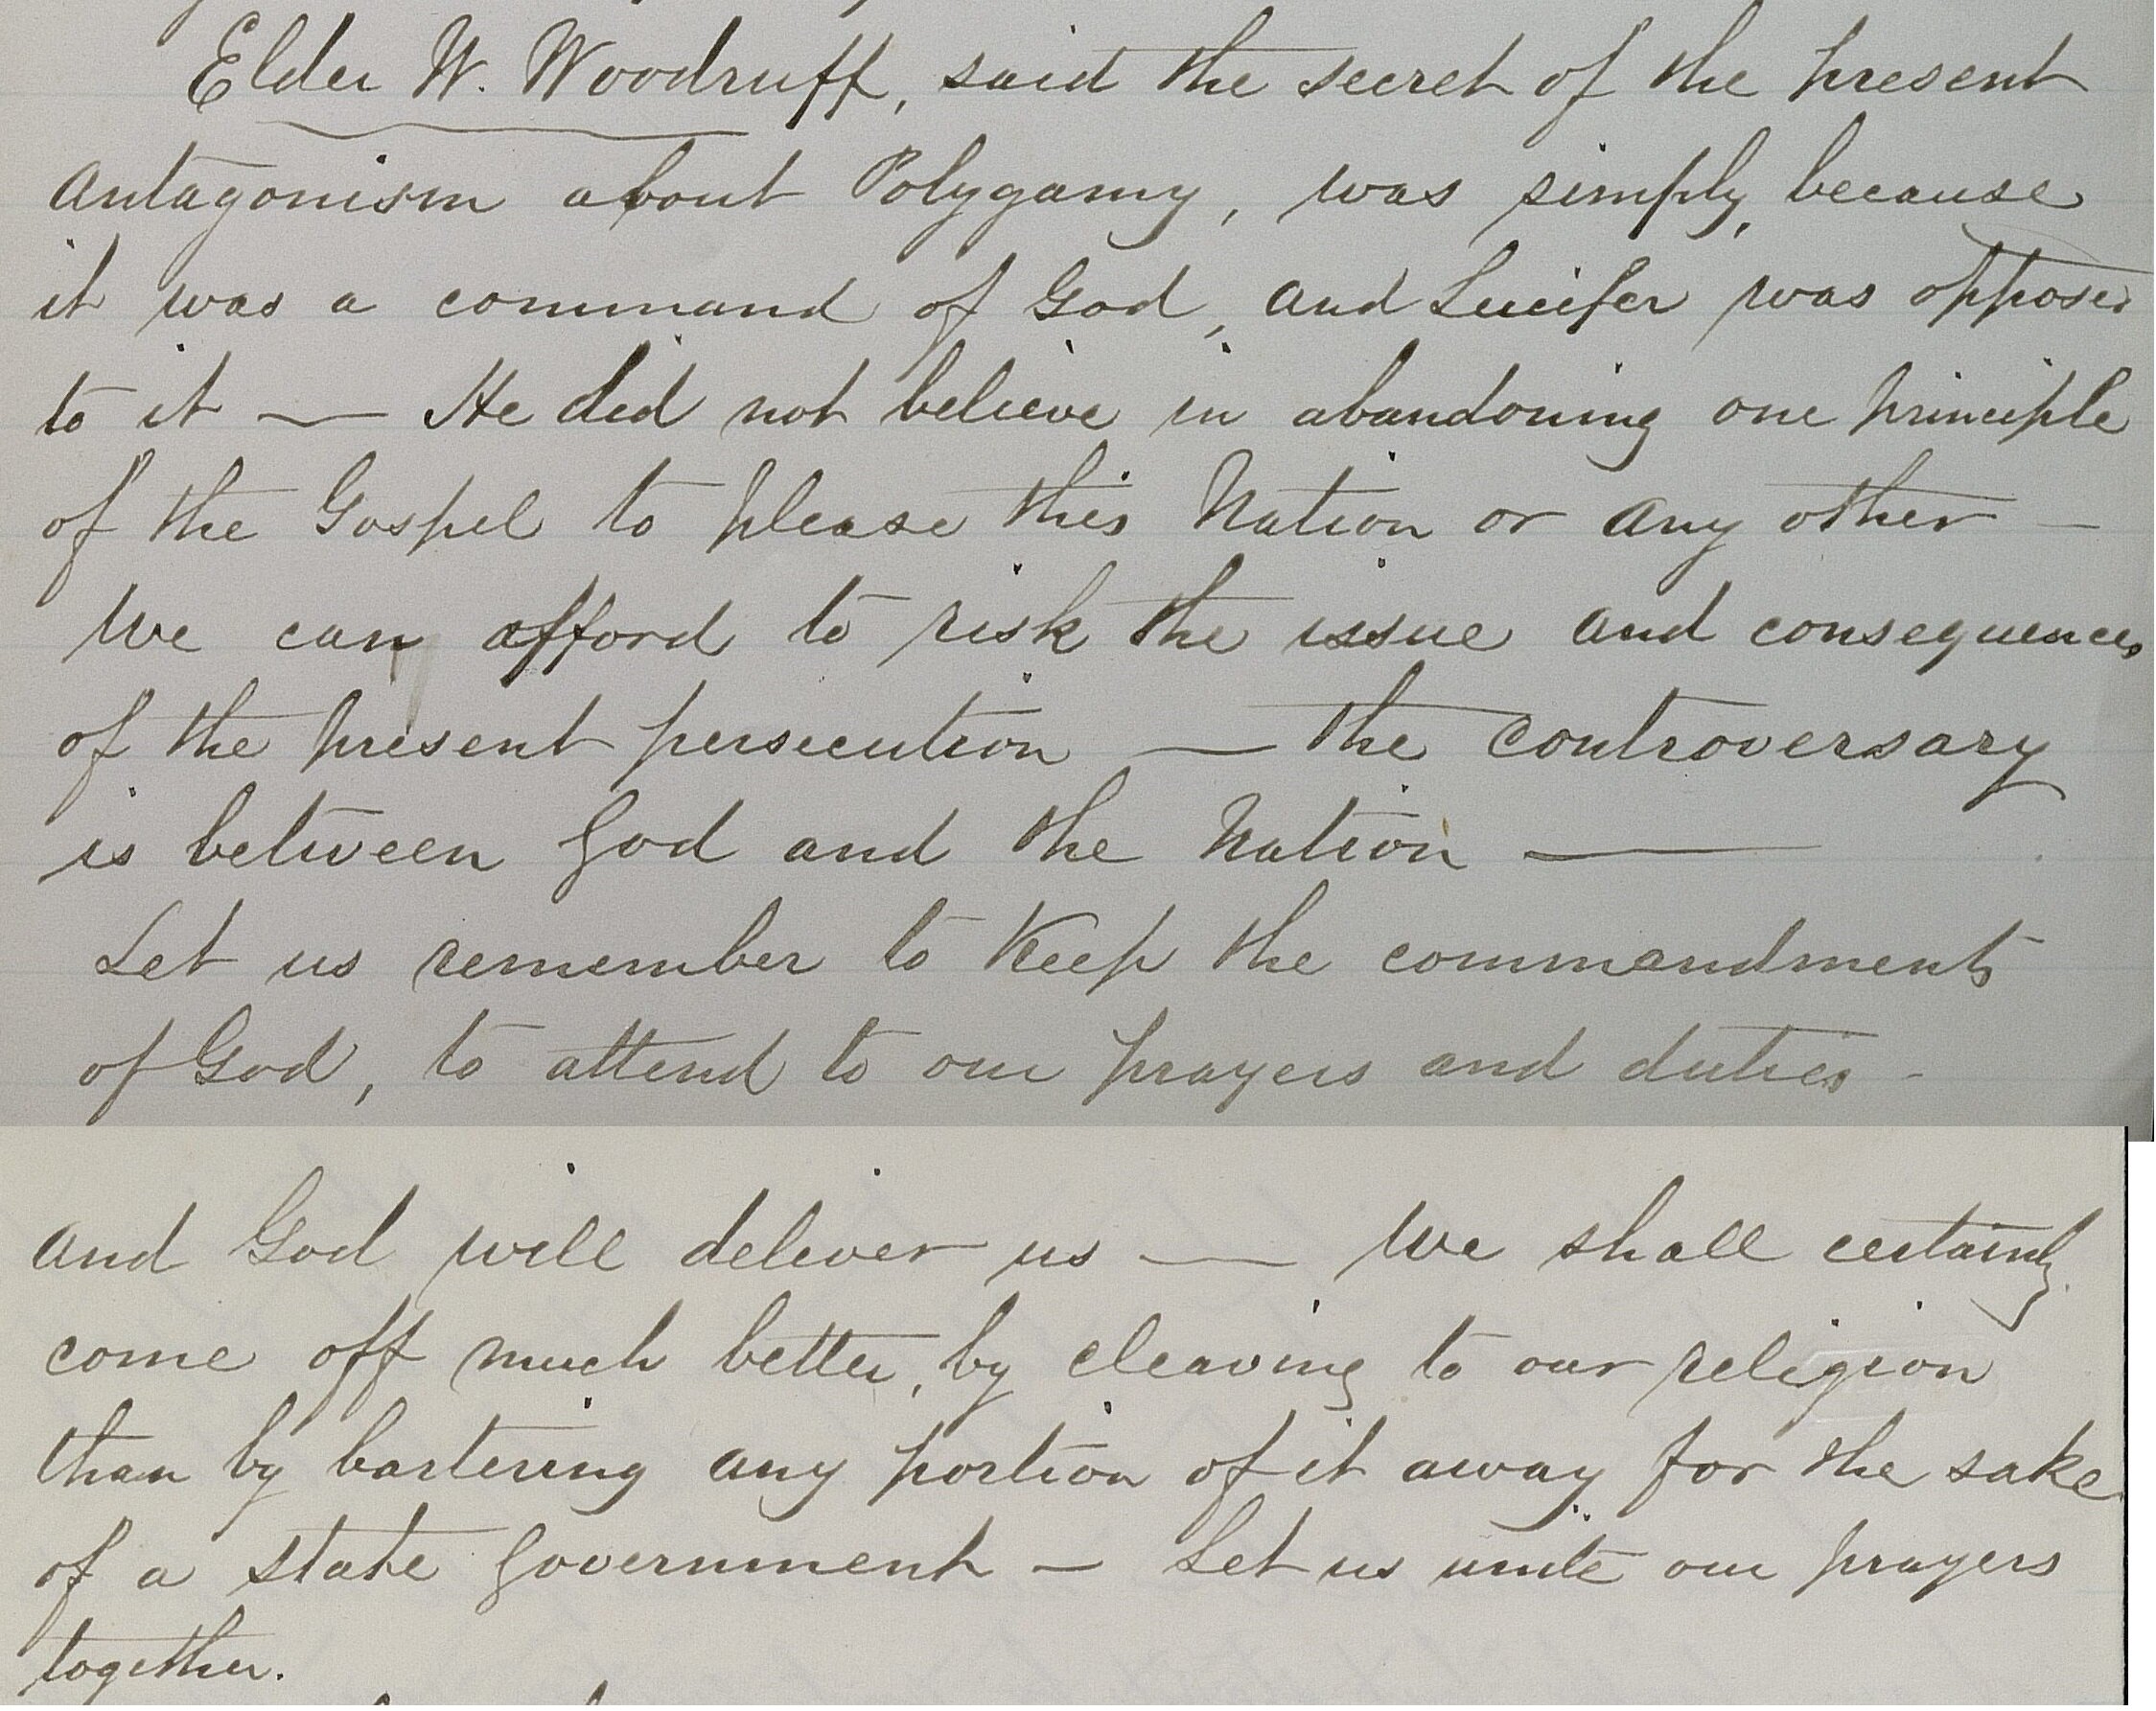 Elder W. Woodruff, said the secret of the present
antagonism about Polygamy, was simply, because
it was a command of God, and Lucifer was opposed
to it — He did not believe in abandoning one principle
of the Gospel to please this Nation or any other —
We can afford to risk the issue and consequences
of the present persecution — the controversary
is between God and the Nation —
Let us remember to Keep the commandments
of God, to attend to our prayers and duties -
and God will deliver us — We shall certainly
come off much better, by cleaving to our religion
than by bartering any portion of it away for the sake
of a state government — Let us unite our prayers
together.